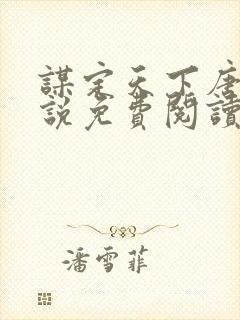 謀定天下唐
說免費閱讀
潘雪菲